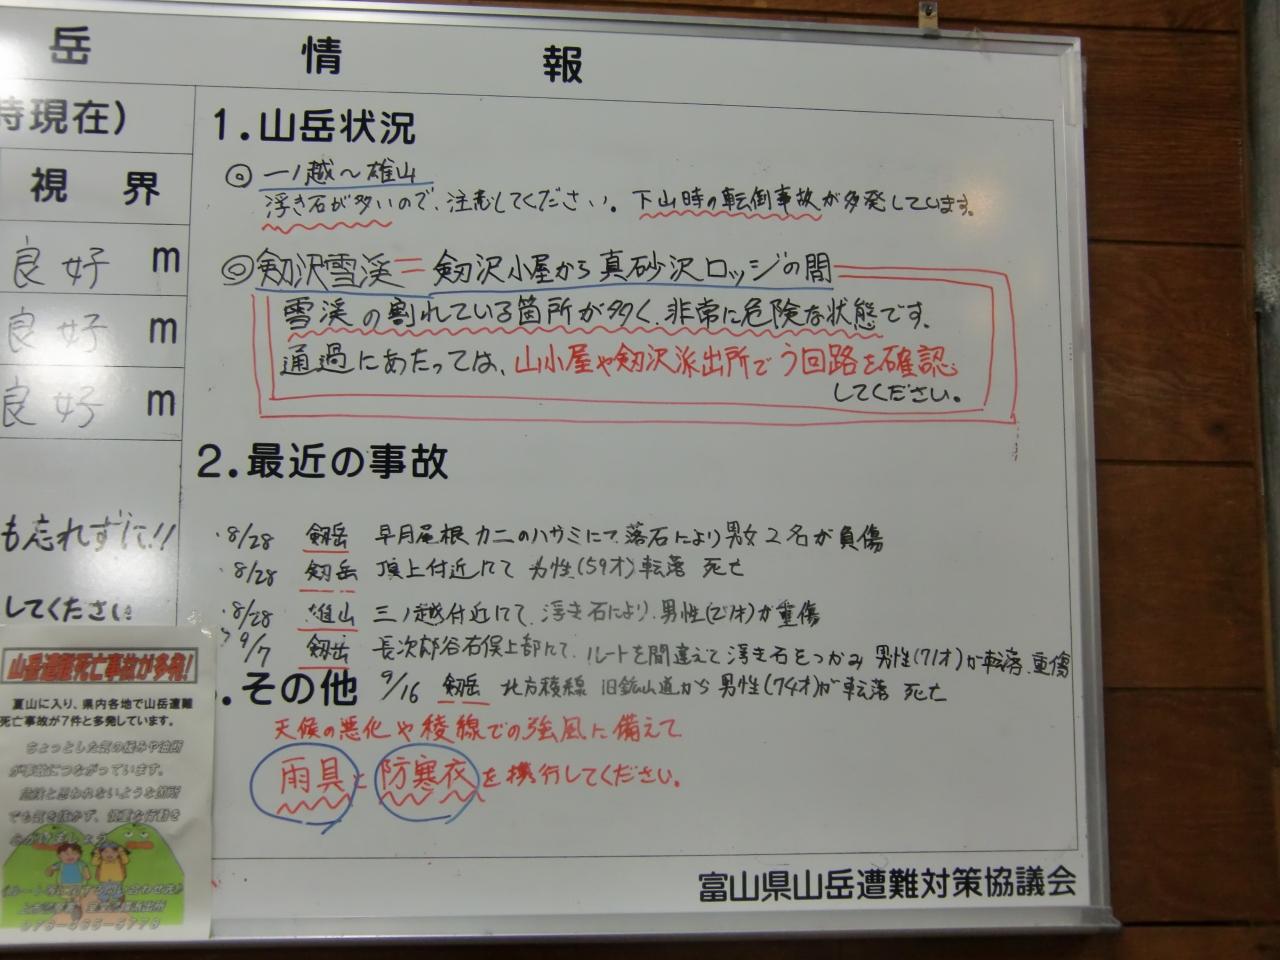 岳 情 報
時現在)
視 界
良好 m
良好 m
良好 m
も忘れずに!!
してください
1.山岳状況
◎ 一ノ越〜雄山
浮き石が多いので、注意してください。下山時の転倒事故が多発しています。
◎剱沢雪渓=剱沢小屋から真砂沢ロッジの間
雪渓の割れている箇所が多く、非常に危険な状態です。
通過にあたっては、山小屋や剱沢派出所でう回路を確認
してください。
2.最近の事故
・8/28 剱岳 早月尾根カニのハサミにて落石により男女2名が負傷
・8/28 剱岳 頂上付近にて 男性(59才)転落 死亡
・8/28 雄山 三ノ越付近にて、浮き石により、男性が重傷
9/7 剱岳 長次郎谷右俣上部にて、ルートを間違えて浮き石をつかみ 男性(71才)が転落、重傷
.その他 9/16 剱岳 北方稜線 旧鉱山道から 男性(74才)が転落 死亡
天候の悪化や稜線での強風に備えて
雨具と防寒衣を携行してください。
富山県山岳遭難対策協議会
山岳遭難死亡事故が多発!
夏山に入り、県内各地で山岳遭難
死亡事故が7件と多発しています。
ちょっとした気の緩みや油断
が事故につながっています。
危険と思われないような箇所
でも気を抜かず、慎重な行動を
心がけましょう